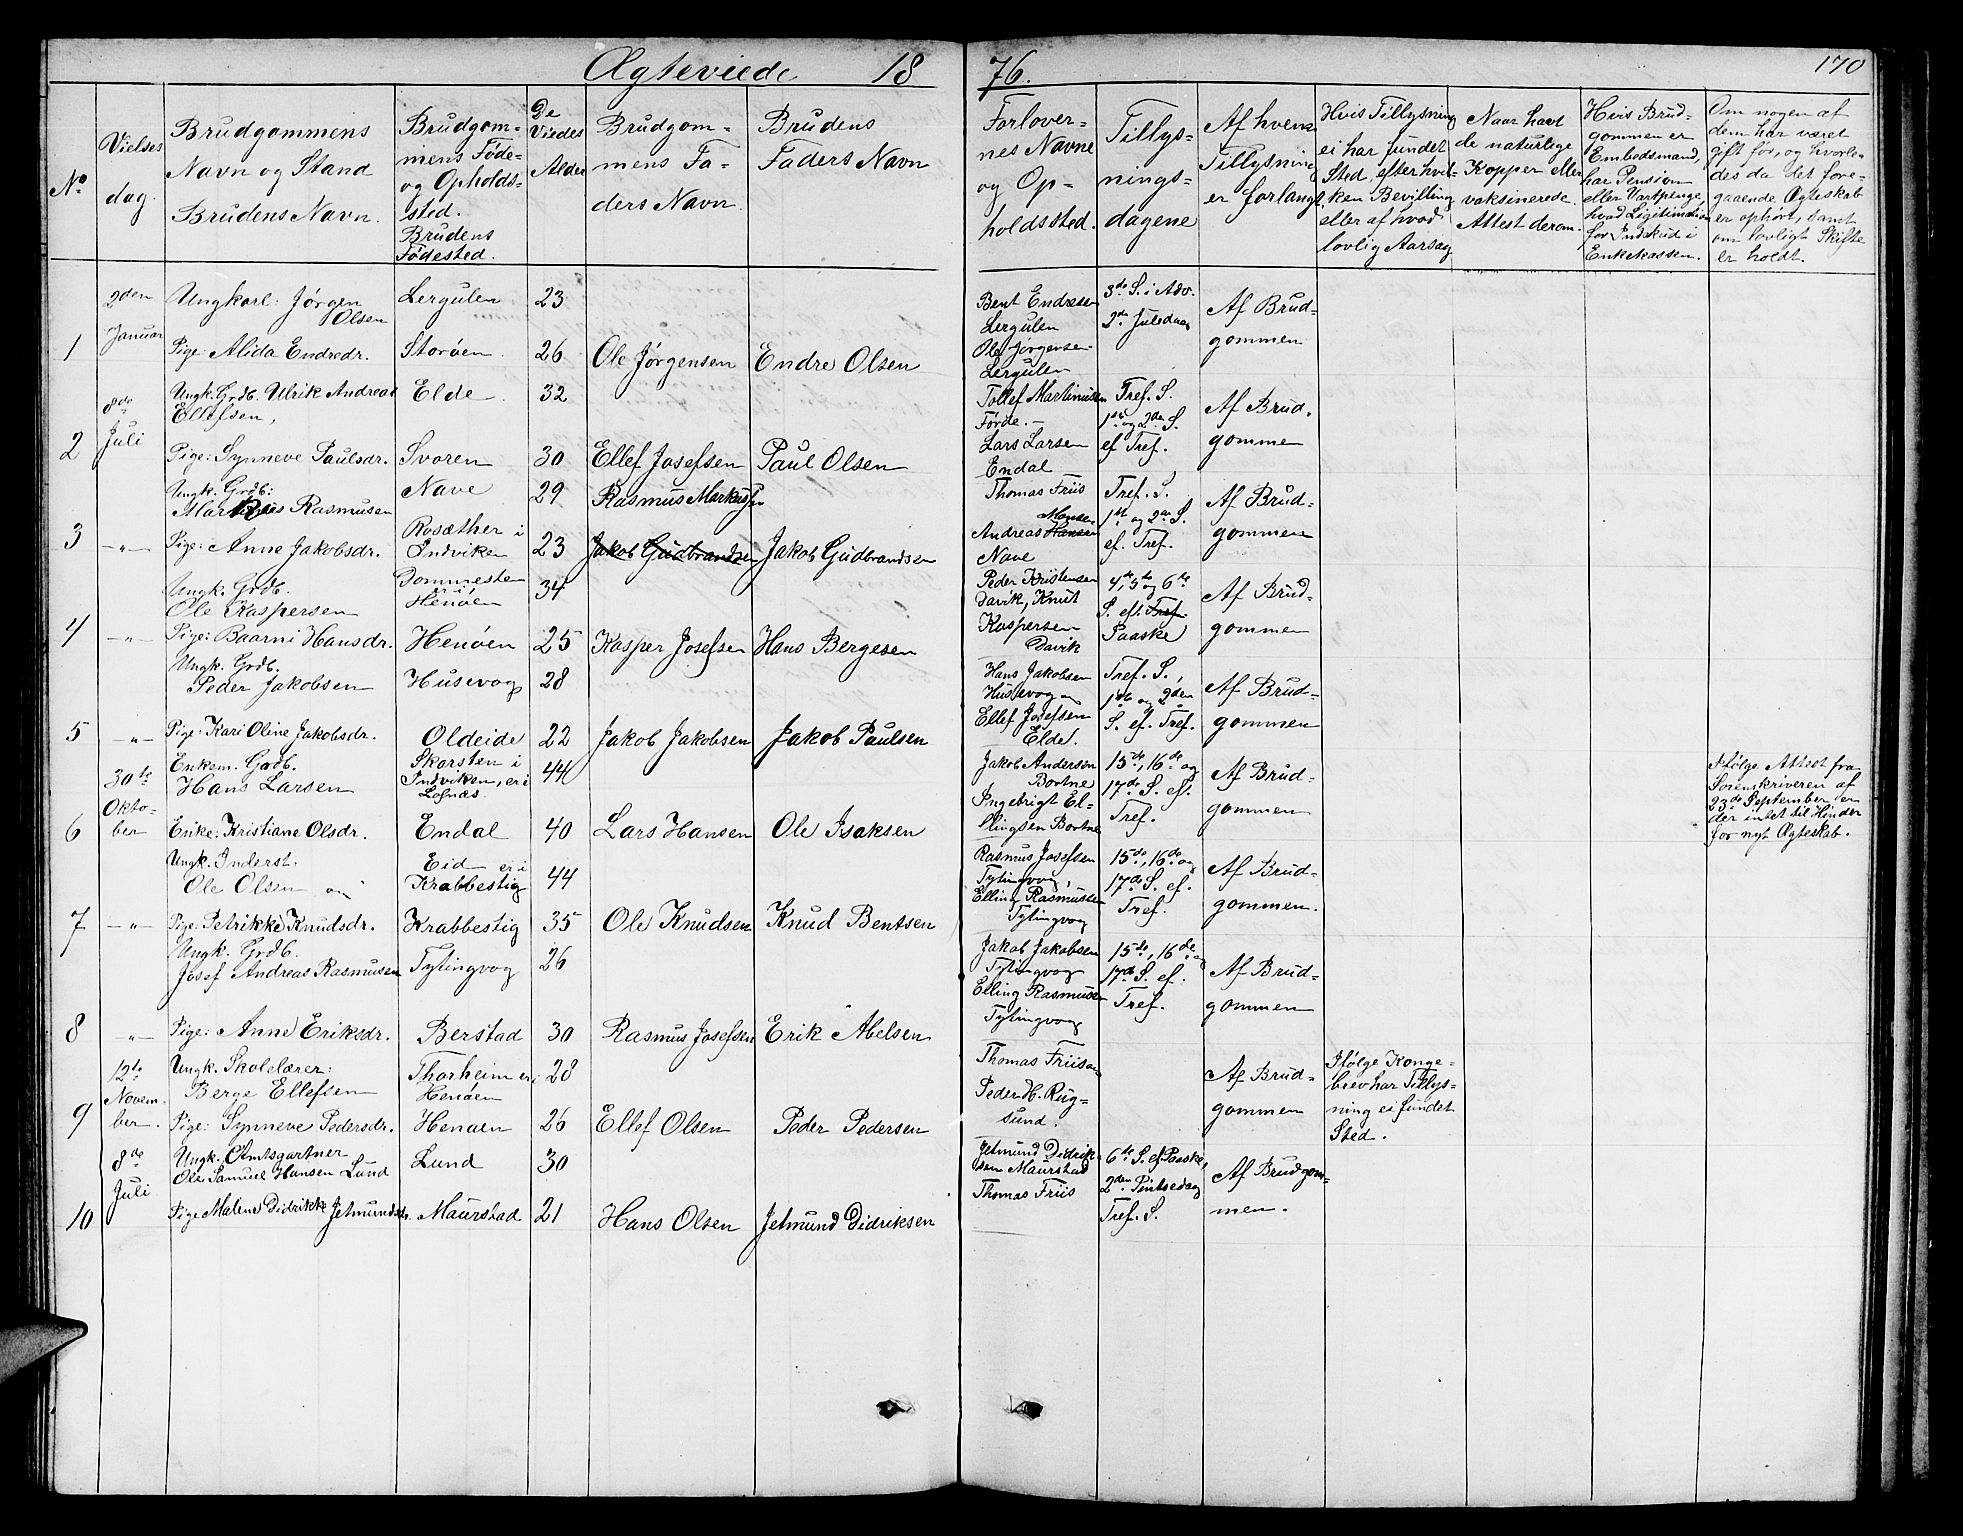 Ægteviede 18 76. 170
No
Vielses dag.
Brudgommens Navn og Stand Brudens Navn.
Brudgommens Føde- og Opholdssted. Brudens Fødested.
De Viedes Alder
Brudgommens Faders Navn
Brudens Faders Navn
Forlovernes Navne og Opholdssted.
Tillysningsdagene
Af hvem Tillysning er forlangt
Hvis Tillysning ei har fundet Sted, efter hvilken Bevilling eller af hvad lovlig Aarsag
Naar havt de naturlige Kopper eller vaksinerede. Attest derom.
Hvis Brudgommen er Embedsmand, har Pension eller Vartpenge, hvad Legitimation for Indskud i Enkekassen.
Om nogen af dem har været gift før, og hvorledes da det foregaaende Ægteskab er ophørt, samt om lovligt Skifte er holdt.
1 2den Januar
Ungkarl: Jørgen Olsen Lergulen 23
Pige: Alida Endredr. Storøen 26 Ole Jørgensen Endre Olsen
Bent Endresen Lergulen Ole Jørgensen Lergulen
3de S. i Adv. 2de Juledag
Af Brudgommen
2 8de Juli
Ungk. Grdb. Ulrik Andreas Ellefsen, Elde 32
Pige: Synneve Paulsdr. Svoren 30 Ellef Josefsen Paul Olsen
Tollef Martinusen Førde. Lars Larsen Endal
Tref. S. 1ste og 2den S. ef Tref.
Af Brudgommen
3 -"-
Ungk. Grdb: Rasmusen Nave 29 Rasmus Markusen
Pige: Anne Jakobsdr. Rosæther i Indviken 23 Jakob Gudbrandsen Jakob Gudbrandsen
Thomas Friis Andreas Hansen Monsen Nave
Tref. S. 1ste og 2den S. ef. Tref.
Af Brudgommen
4 -"-
Ungk. Grdb. Ole Kaspersen Dommesten er i Henøen 34
Pige: Baarni Hansdr. Henøen 25 Kasper Josefsen Hans Bergesen
Peder Kristensen Davik, Knut Kaspersen Davik
4de, 5te og 6te S. eft. Tref. Paaske
Af Brudgommen
5 -"-
Ungk. Grdb. Peder Jakobsen Husevog 28
Pige: Kari Oline Jakobsdr. Oldeide 22 Jakob Jakobsen Jakob Paulsen
Hans Jakobsen Husevog og Ellef Josefsen Elde.
Tref. S., 1ste og 2den S. ef. Tref.
Af Brudgommen
6 30te Oktober
Enkem. Gadb. Hans Larsen Skarsten i Indviken, er i Lofnæs 44
Enke: Kristiane Olsdr. Endal 40 Lars Hansen Ole Isaksen
Jakob Andersen Bortne Ingebrigt Ellingsen Bortne
15de, 16de og 17de S. ef. Tref.
Af Brudgommen
Ifølge Attest fra Sorenskriveren af 23de September er der intet til Hinder for nyt Ægteskab.
7 -"-
Ungk. Inderst. Ole Olsen Eid er i Krabbestig 44
Pige: Petrikke Knudsdr. Krabbestig 35 Ole Knudsen Knud Bentsen
Rasmus Josefsen Tytingvog, Elling Rasmussen Tytingvog
15de, 16de og 17de S. ef. Tref.
Af Brudgommen.
8 -"-
Ungk. Grdb. Josef Andreas Rasmusen Tytingvog 26
Pige: Anne Eriksdr. Berstad 30 Rasmus Josefsen Erik Abelsen
Jakob Jakobsen Tytingvog Elling Rasmusen Tytingvog
15de, 16de og 17de S. ef. Tref.
Af Brudgommen
9 12te November.
Ungk. Skolelærer: Berge Ellefsen Thorheim er i Henøen 28
Pige: Synneve Pedersdr. Henøen 26 Ellef Olsen Peder Pedersen
Thomas Friis og Peder H. Rugsund.
Af Brudgommen
Ifølge Kongebrev har Tillysning ei fundet Sted.
10 8de Juli
Ungk. Amtsgartner Ole Samuel Hansen Lund Lund 30
Pige Malene Didrikke Jetmundsdr. Maurstad 21 Hans Olsen Jetmund Didriksen
Jetmund Didriksen Maurstad Thomas Friis
6te S. ef. Paaske, 2den Pintsedag Tref. S.
Af Brudgommen.